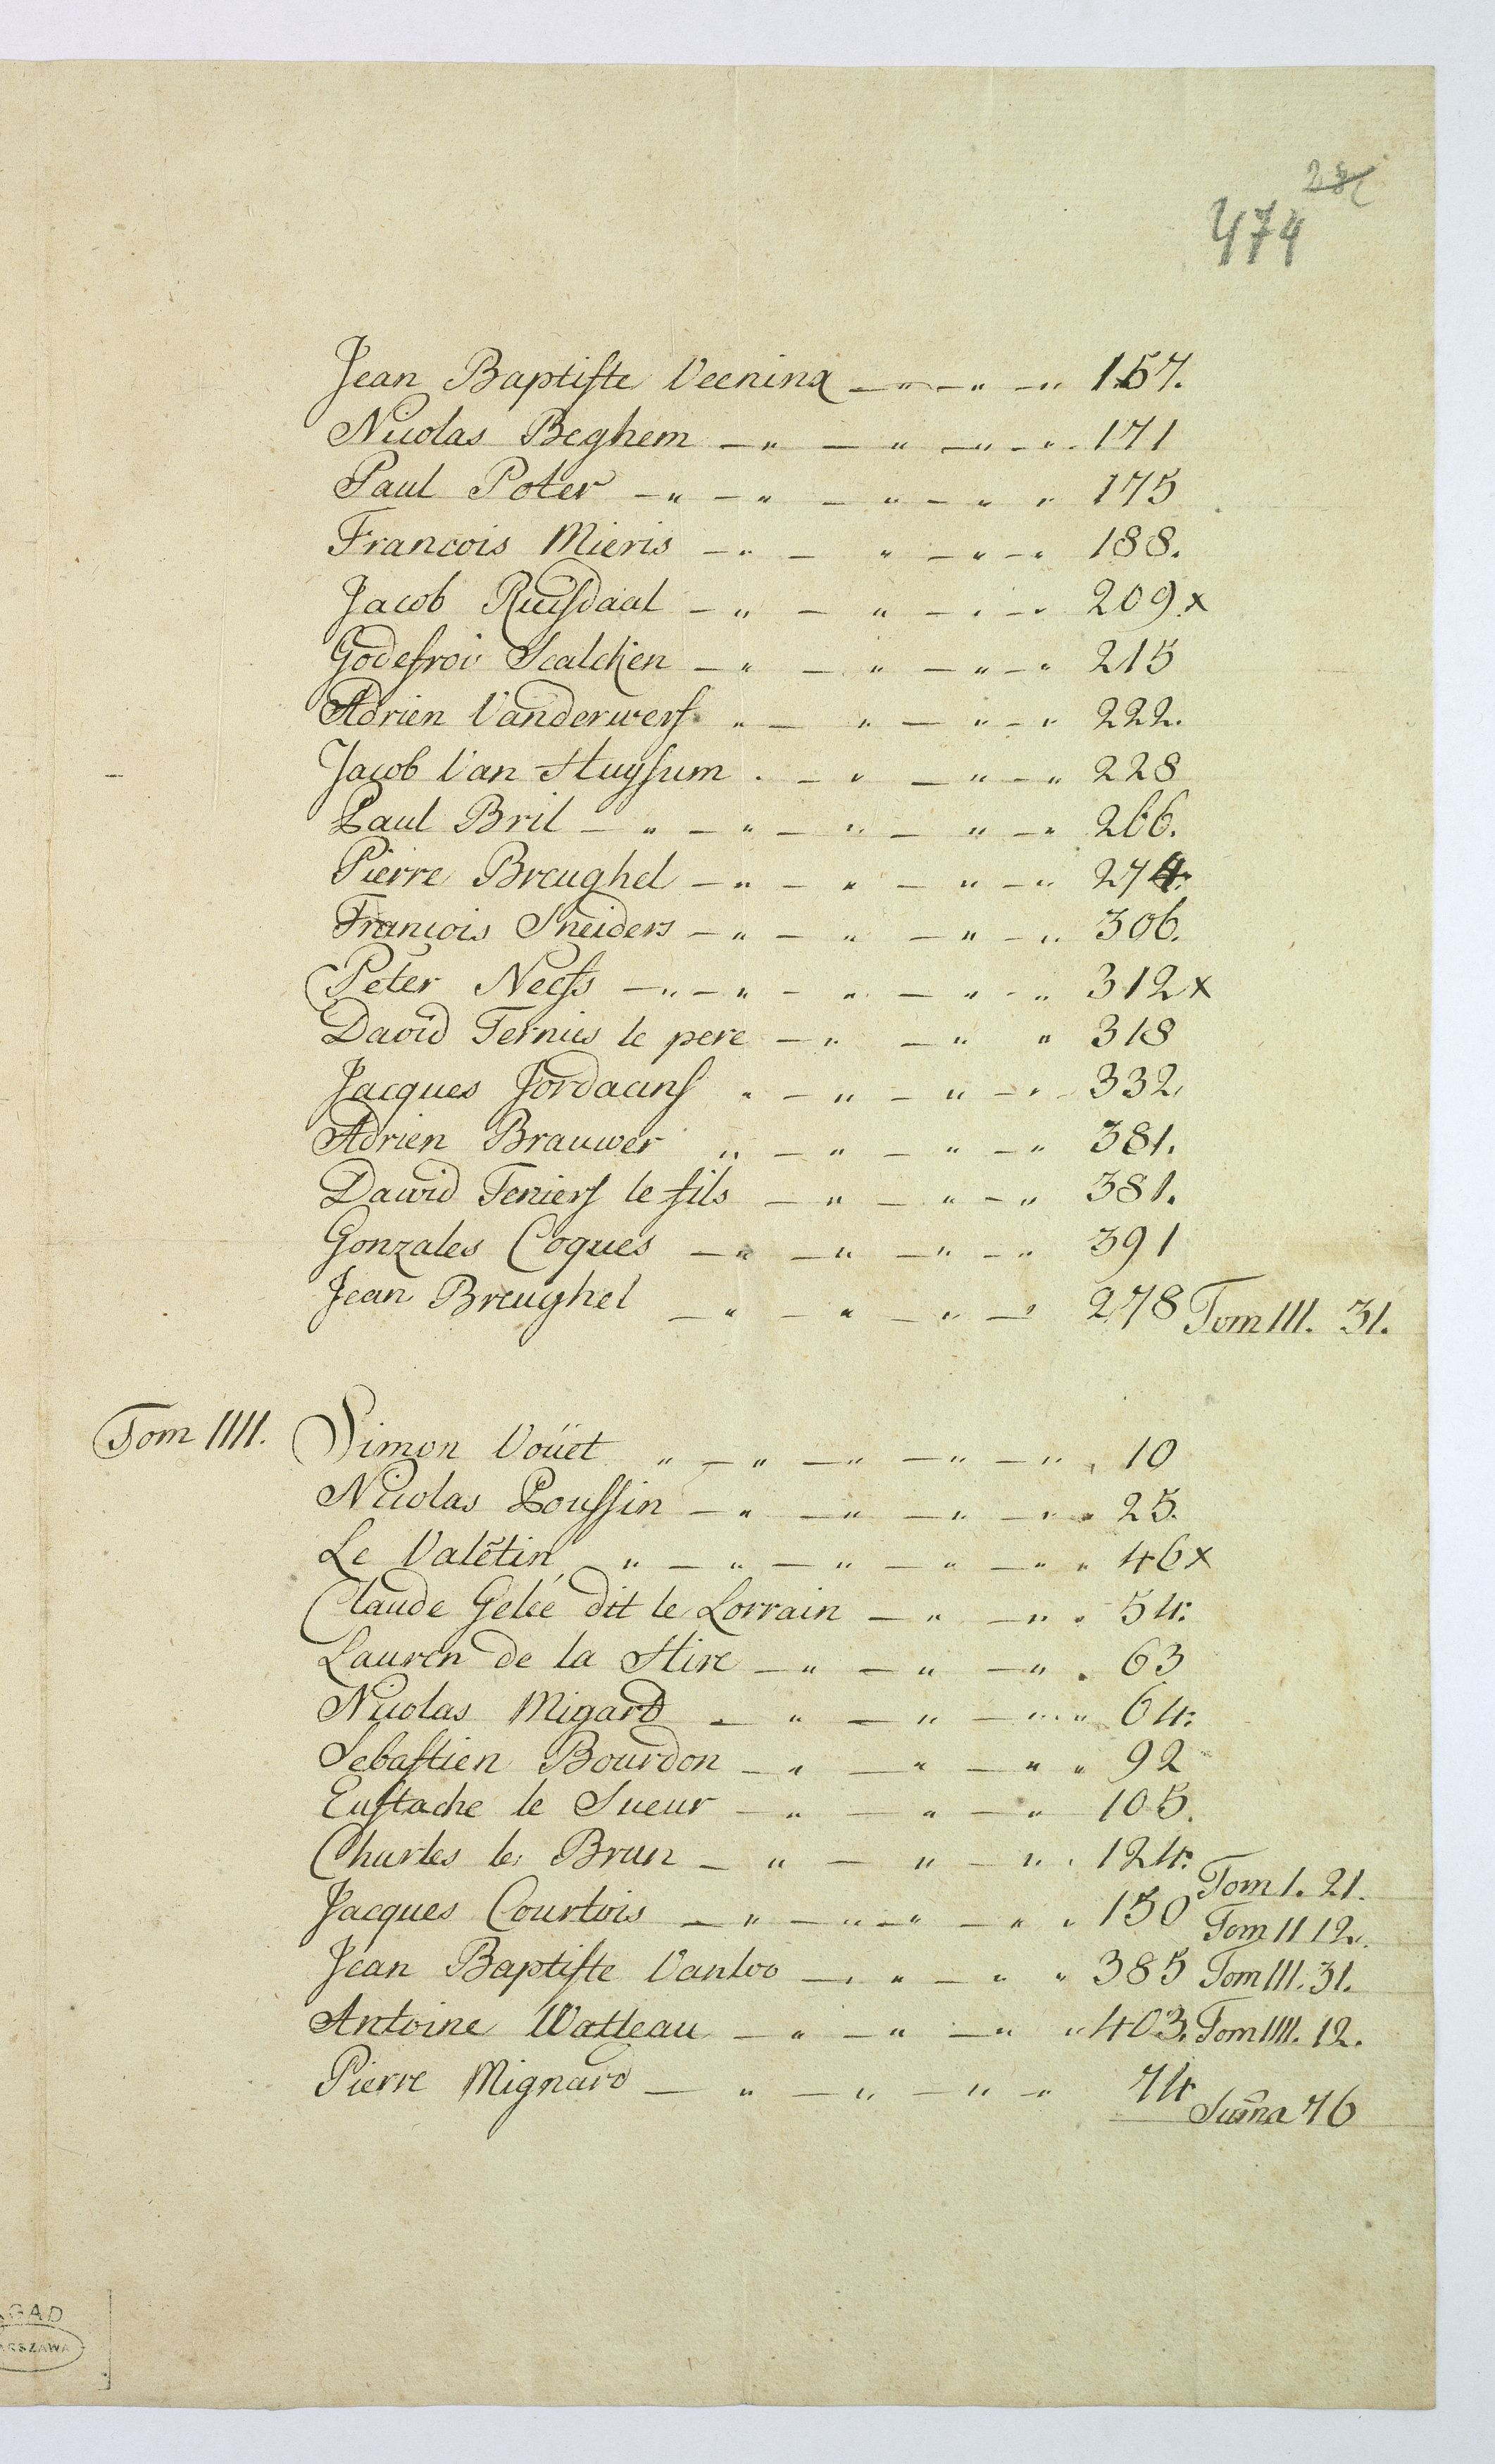 28
474
Jean Baptiste Veeninx — " — " — " 157.
Nicolas Beghem — " — " — " — " . 171
Paul Poter — " — " — " — " " 175
Francois Mieris — " — " — " — " 188.
Jacob Ruisdaal — " — " — " — " 209.x
Godefroi Scalcken — " — " — " — " 215
Adrien Vanderwerf " — " — " — " 222.
Jacob Van Huysum . — " — " — " 228
Paul Bril — " — " — " — " — " 266.
Pierre Breughel — " — " — " — " 274.
François Sneiders — " — " — " — " 306.
Peter Neefs — " — " — " — " — " 312x
David Ternies le pere — " — " " 318
Jacques Jordaans " — " — " — " 332.
Adrien Brauwer " — " — " — " 381.
Dawid Teniers le fils — " — " — " 381.
Gonzales Coques — " — " — " — " 391
Jean Breughel — " — " — " — " 278 Tom III. 31.
Tom IIII. Simon Voüet " — " — " — " — " . 10
Nicolas Poussin — " — " — " — " " 25.
Le Valẽtin " — " — " — " — " " 46x
Claude Gelée dit le Lorrain — " — " " 54.
Lauren de la Hire — " — " — " . 63
Nicolas Migard — " — " — " " 64.
Sebastien Bourdon — " — " — " " 92
Eustache le Sueur — " — " — " 105.
Charles le Brun — " — " — " . 124.
Tom I. 21.
Jacques Courtois — " — " — " — " " 150
Tom II 12.
Jean Baptiste Vanloo — " " — " " 385 Tom III. 31.
Antoine Watteau — " — " — " " 403. Tom IIII. 12.
Pierre Mignard — " — " — " — " 74
Sum̃a 76
AGAD
WARSZAWA